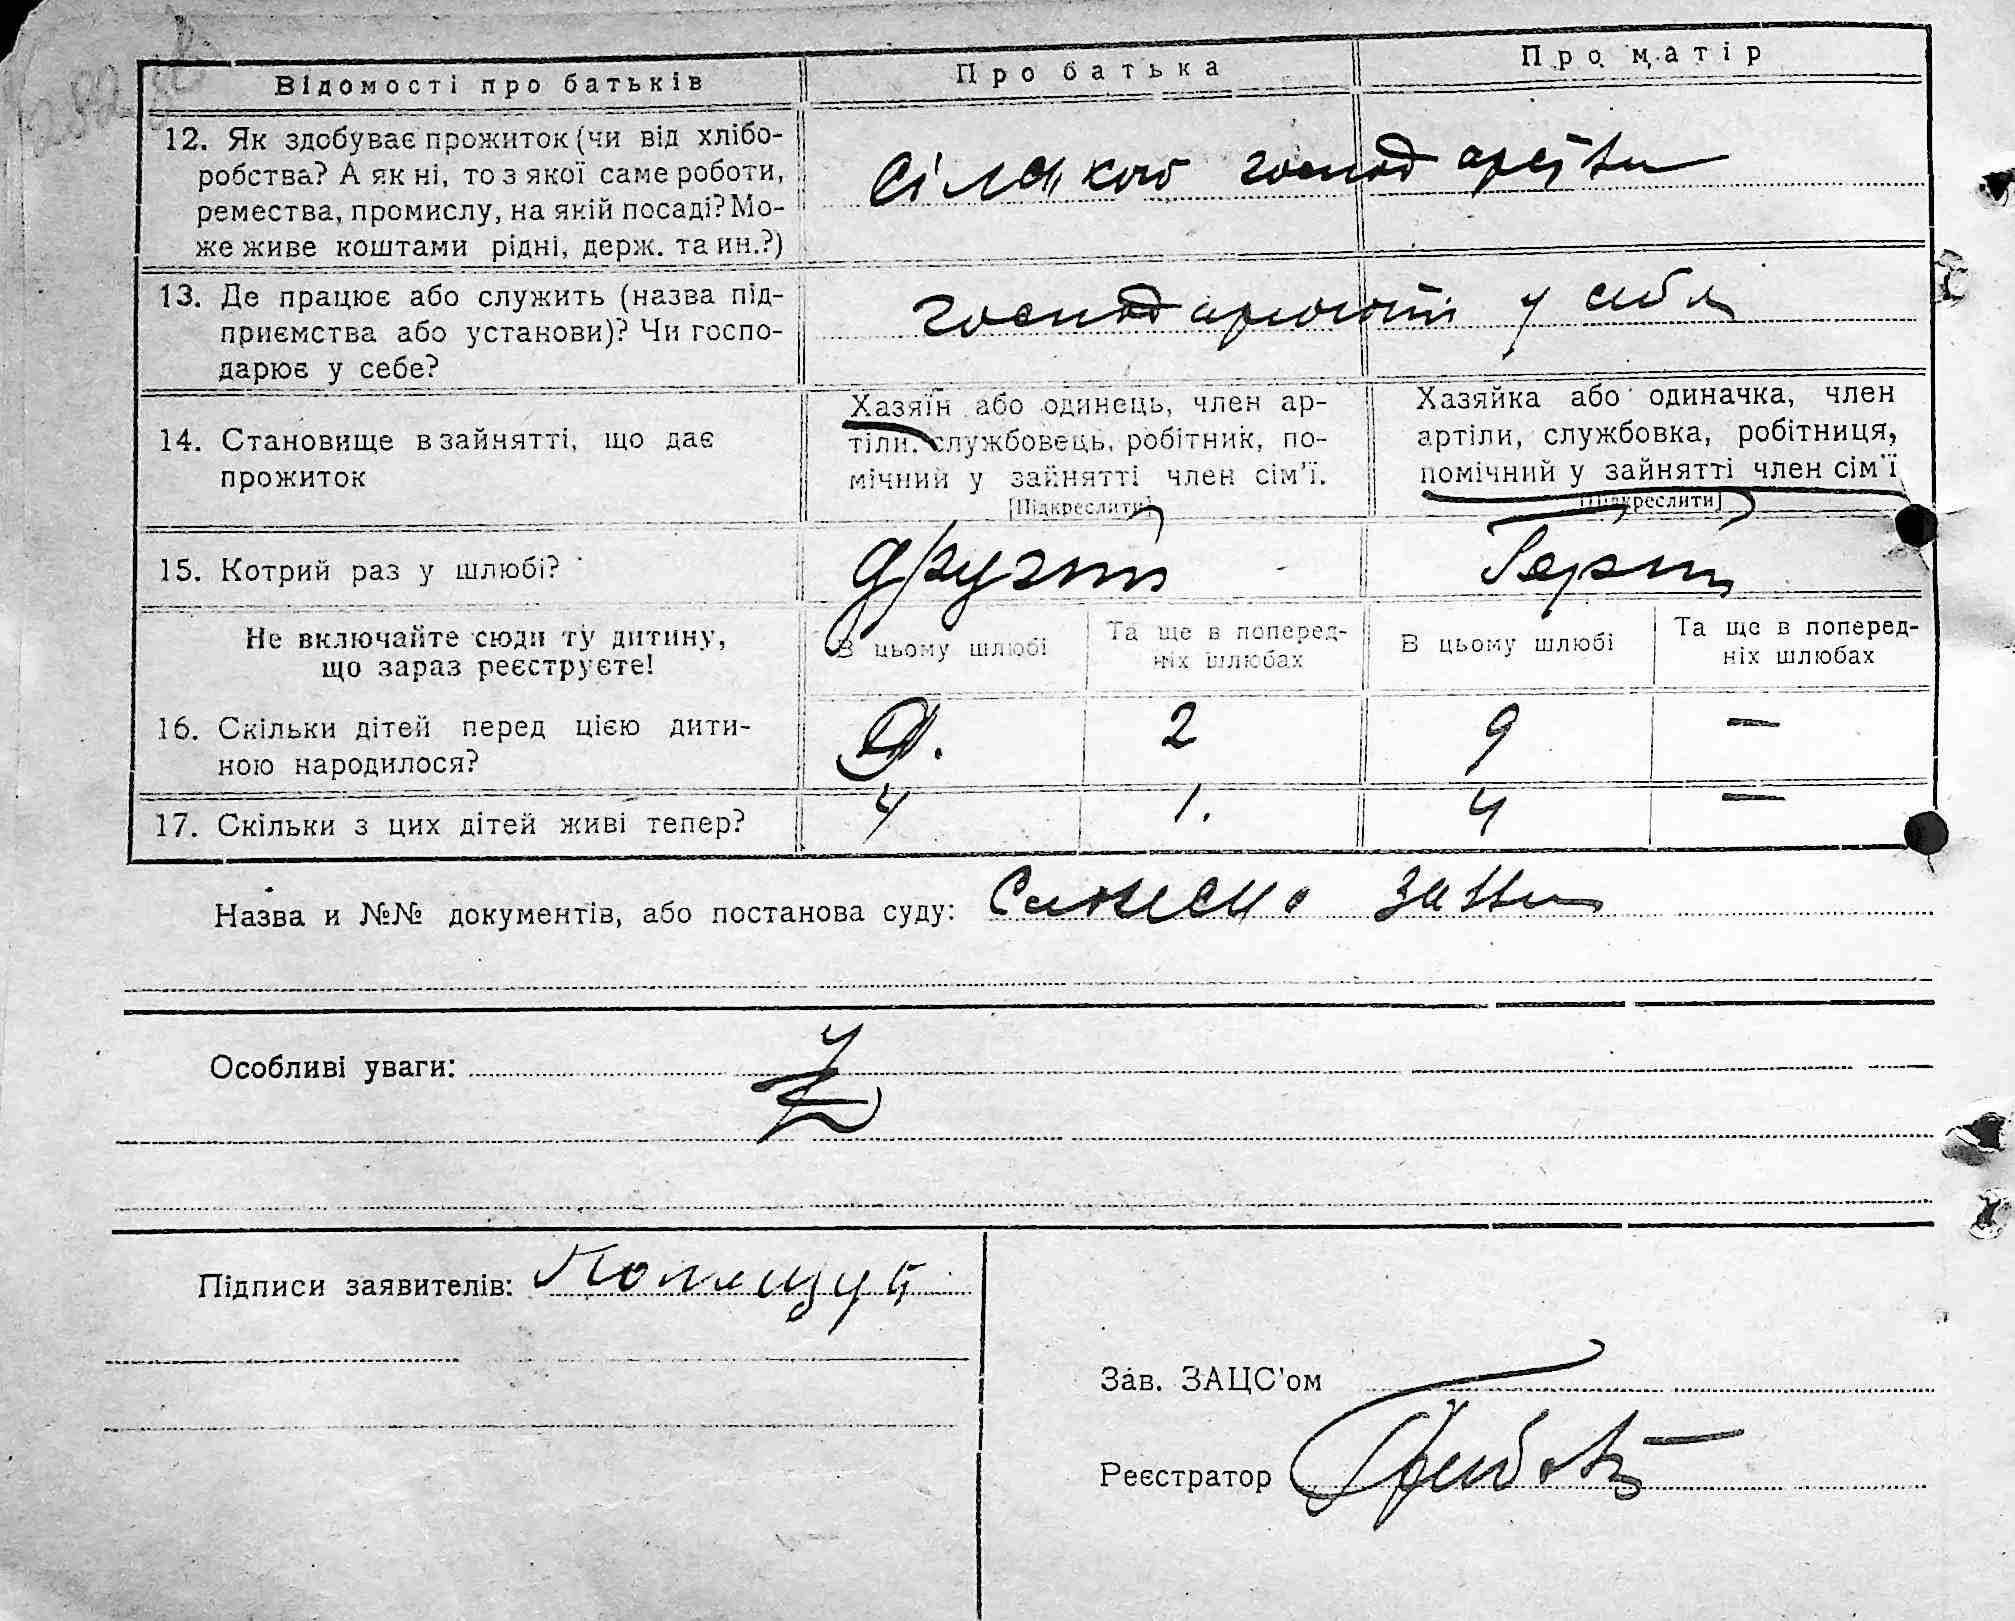 Відомості про батьків
Про батька
Про матір
12. Як здобуває прожиток (чи від хлібо-
робства? А як ні, то з якої саме роботи,
ремества, промислу, на якій посаді? Мо-
же живе коштами рідні, держ. та ин.?)
господарства
13. Де працює або служить (назва під-
приємства або установи)? Чи госпо-
дарює у себе?
у себя
14. Становище в зайнятті, що дає
прожиток
Хазяїн або одинець, член ар-
тіли, службовець, робітник, по-
мічний у зайнятті член сім'ї.
[Підкреслити]
Хазяйка або одиначка, член
артіли, службовка, робітниця,
помічний у зайнятті член сім'ї
[Підкреслити]
15. Котрий раз у шлюбі?
другий
Перший
Не включайте сюди ту дитину,
що зараз реєструєте!
В цьому шлюбі
Та ще в поперед-
ніх шлюбах
В цьому шлюбі
Та ще в поперед-
ніх шлюбах
16. Скільки дітей перед цією дити-
ною народилося?
9. 2 9 —
17. Скільки з цих дітей живі тепер?
4 1. 4 —
Назва и №№ документів, або постанова суду:
Особливі уваги:
Підписи заявителів:
Зав. ЗАЦС'ом
Реєстратор